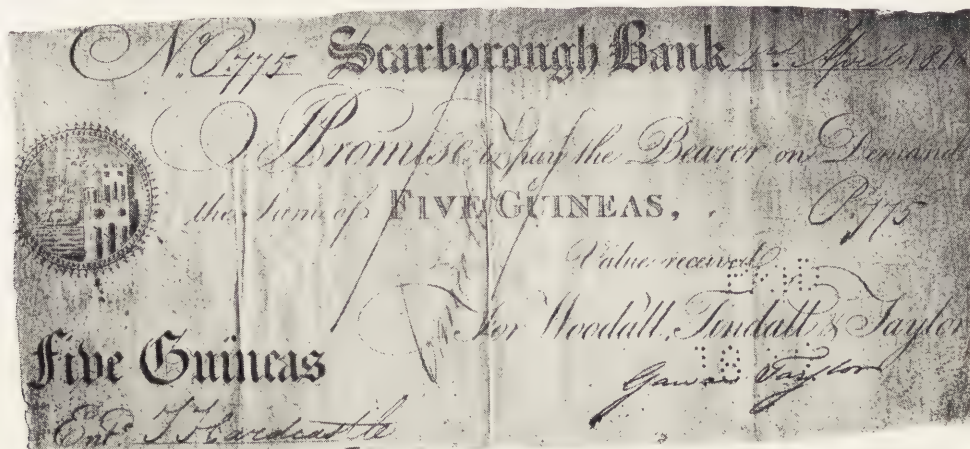 No P775 Scarborough Bank April 181
I Promise to pay the Bearer on Demand
the Sum of FIVE GUINEAS, P775
Value received
For Woodall, Tindall & Taylor
Five Guineas
Taylor
Entd. Hardcastle